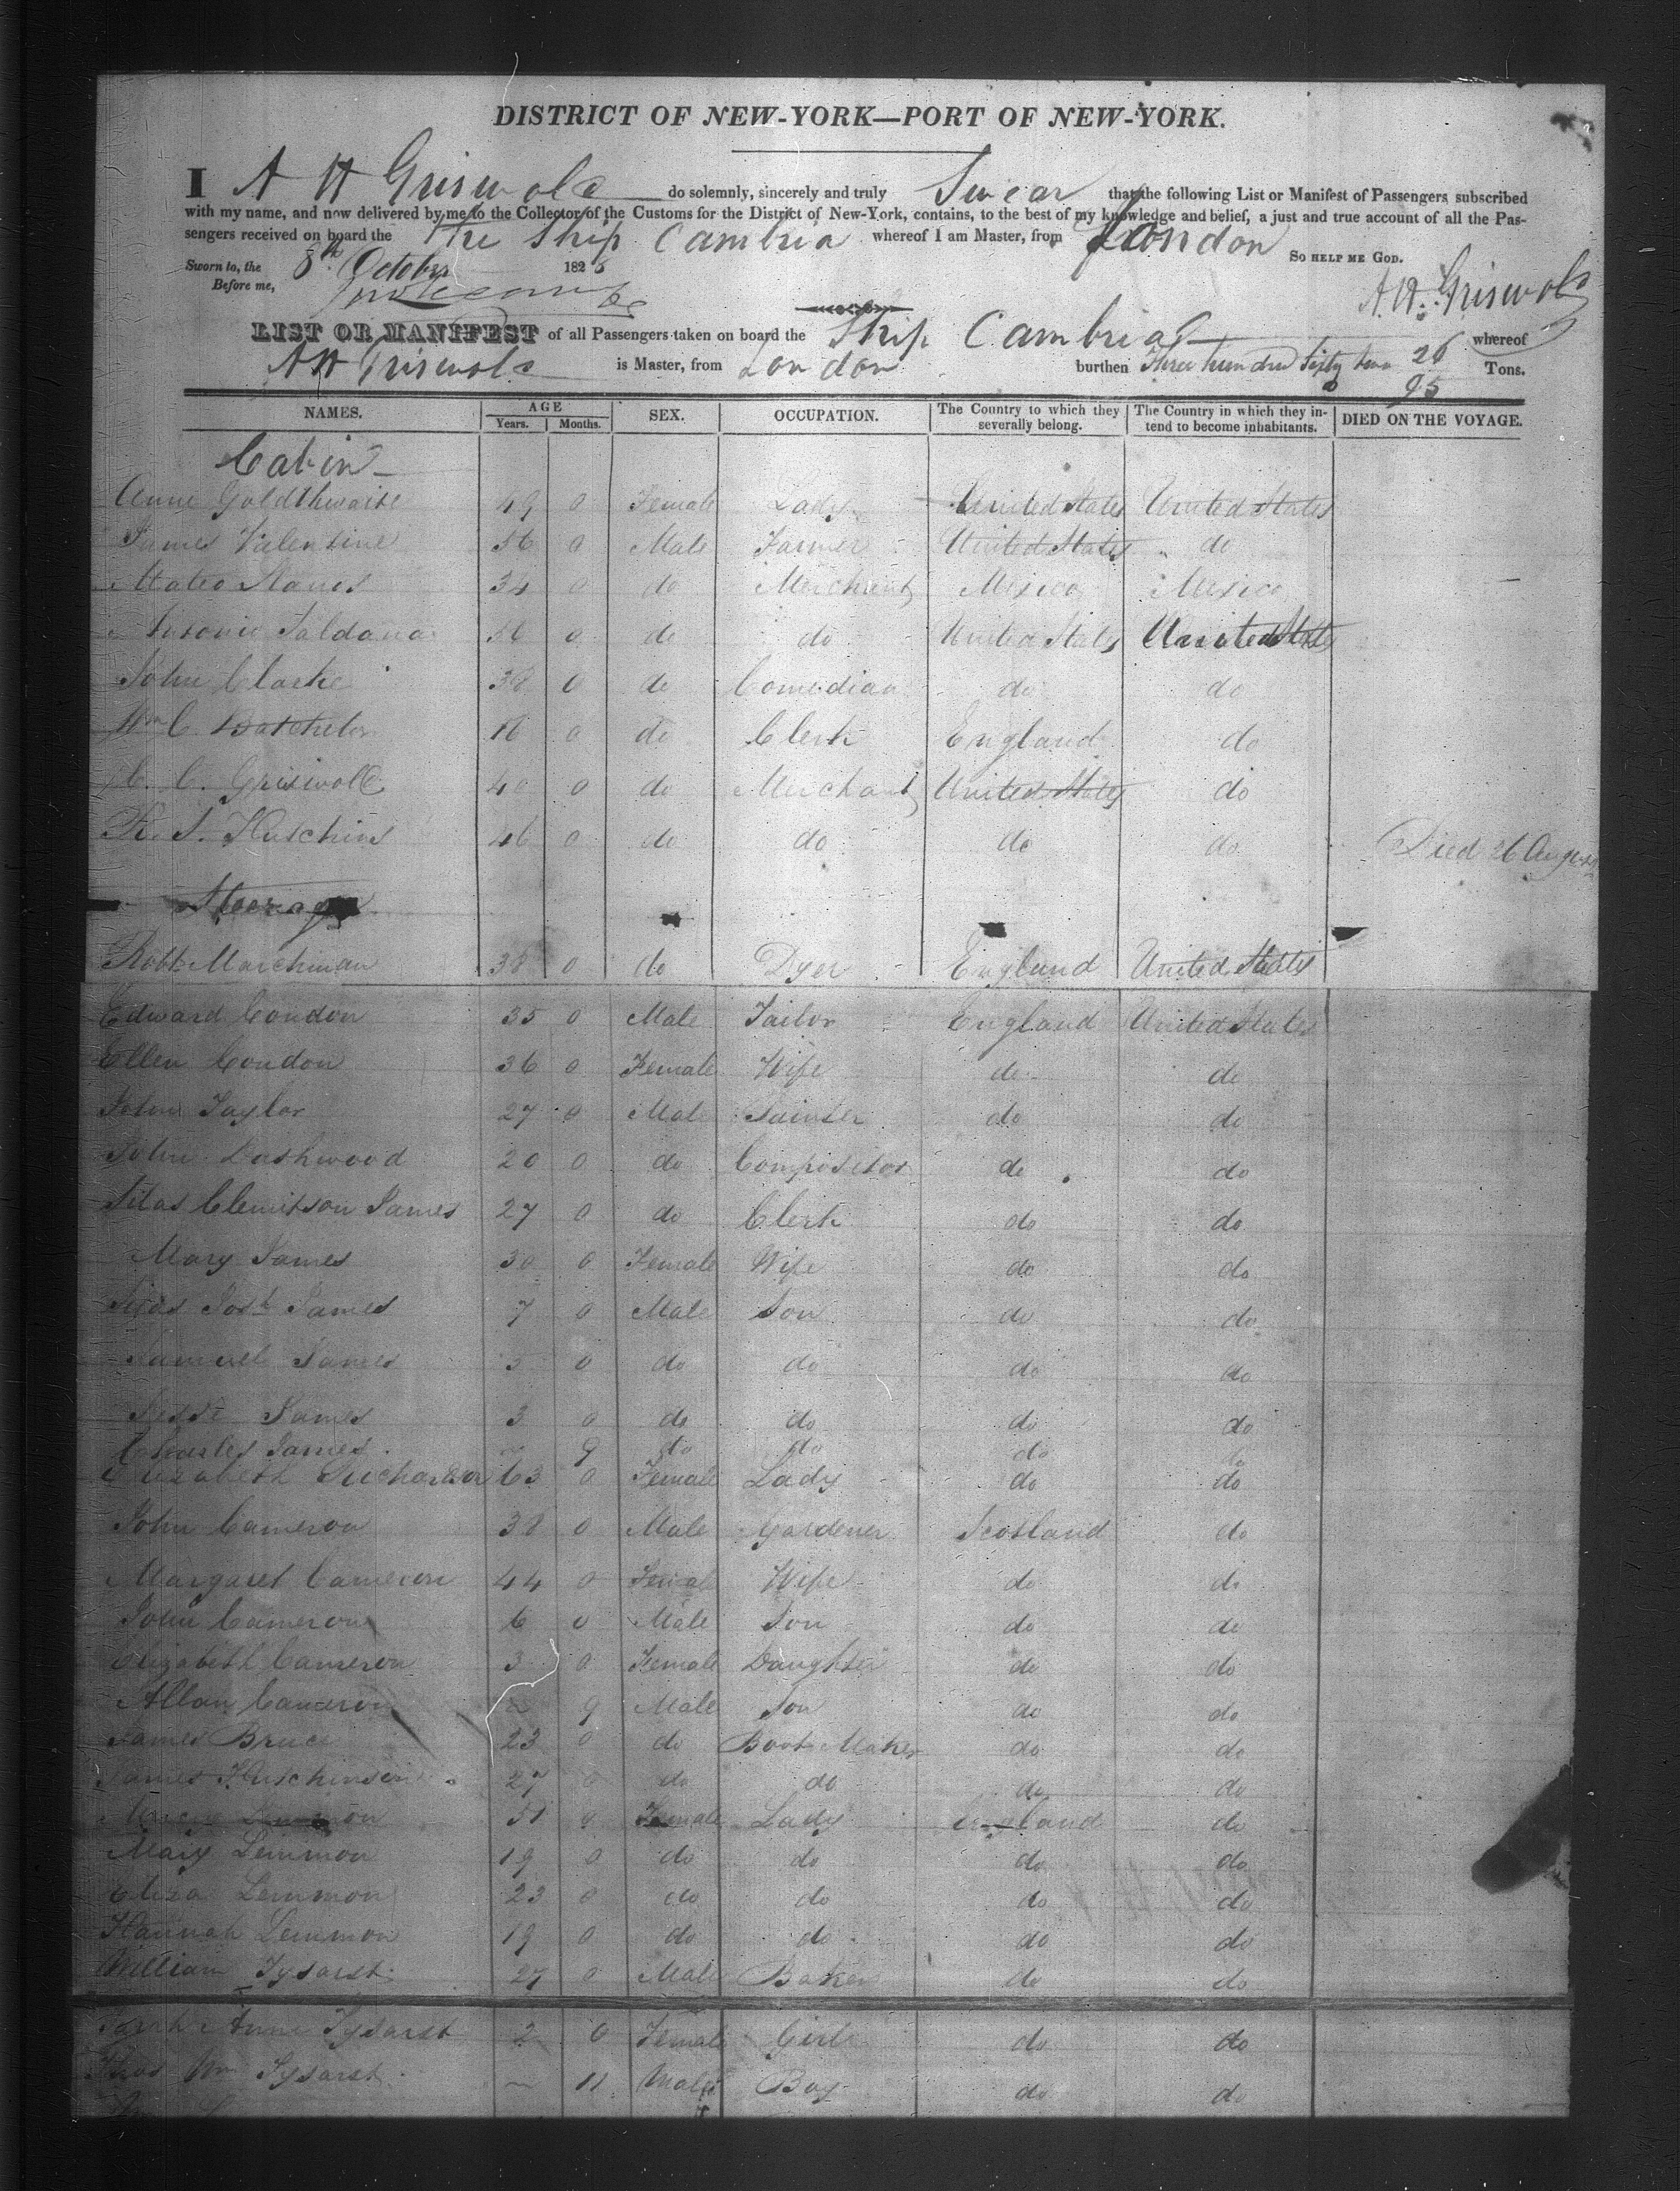 DISTRICT OF NEW-YORK—PORT OF NEW-YORK.
I A H Griswold do solemnly, sincerely and truly Swear that the following List or Manifest of Passengers subscribed
with my name, and now delivered by me to the Collector of the Customs for the District of New-York, contains, to the best of my knowledge and belief, a just and true account of all the Pas-
sengers received on board the the Ship Cambria whereof I am Master, from London
So HELP ME GOD.
Sworn to, the 8th October 182
Before me,
A H. Griswold
LIST OR MANIFEST of all Passengers taken on board the Ship Cambria whereof
A H Griswold is Master, from London burthen Three hundred Sixty two 26/95 Tons.
NAMES. AGE Years. Months. SEX. OCCUPATION. The Country to which they severally belong. The Country in which they in-tend to become inhabitants. DIED ON THE VOYAGE.
Cabin
Anne Goldthwaite 49 0 Female Lady United States United States
James Valentine 56 0 Male Farmer United States do
Mateo 34 0 do Merchant Mexico Mexico
Saldana 0 do do United States United States
John Clarke 38 0 do Comedian do do
Wm C. Batchelor 16 0 do Clerk England do
C. C. Griswold 40 0 do Merchant United States do
S. Hutchins 46 0 do do do do Died 26 August
Steerage
Robt Marchman 38 0 do Dyer England United States
Edward Condon 35 0 Male Tailor England United States
Ellen Condon 36 0 Female Wife do do
John Taylor 27 0 Male Painter do do
John Dashwood 20 0 do Compositor do do
Silas Clemitson James 27 0 do Clerk do do
Mary James 30 0 Female Wife do do
Silas Josh James 7 0 Male Son do do
Samuel James 5 0 do do do do
Jesse James 3 0 do do do do
Charles James. ~ 9 do do do do
Elizabeth 63 0 Female Lady do do
John Cameron 38 0 Male Gardener Scotland do
Margaret Cameron 44 0 Female Wife do do
John Cameron 6 0 Male Son do do
Elizabeth Cameron 3 0 Female Daughter do do
Allan Cameron ~ 9 Male Son do do
James Bruce 23 0 do Boot Maker do do
James Hutchinson 27 0 do do do do
51 0 Female Lady England do
Mary Lemmon 19 0 do do do do
Eliza Lemmon 23 0 do do do do
Hannah Lemmon 19 0 do do do do
William Tysarst 27 0 Male Baker do do
Anne Tysarst 2 0 Female Girl do do
Thos Wm Tysarst ~ 11 Male Boy do do